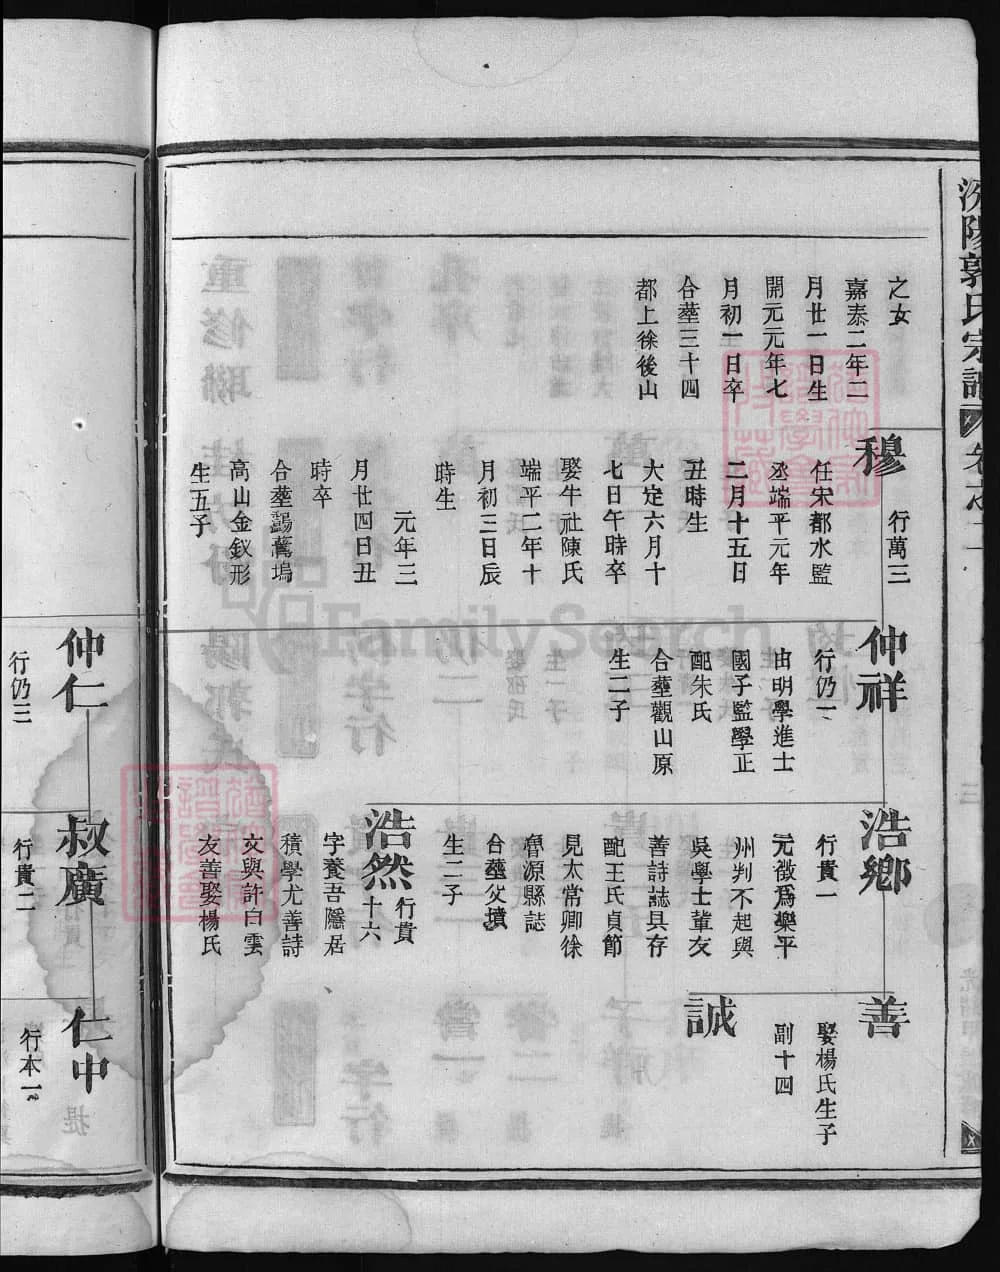 汾陽郭氏宗譜
卷之一
之女
嘉泰二年二
月廿一日生
開元元年七
月初一日卒
合塟三十四
都上徐後山
穆
行萬三
任宋都水監
丞端平元年
二月十五日
丑時生
大定六月十
七日午時卒
娶牛社陳氏
端平二年十
月初三日辰
時生
元年三
月廿四日丑
時卒
合塟鷊蒿塢
高山金釵形
生五子
仲祥
行仍一
由明學進士
國子監學正
配朱氏
合塟觀山原
生二子
浩鄉
行貴一
元徵爲樂平
州判不起與
吳學士輩友
善詩誌具存
配王氏貞節
見太常卿徐
魯源縣誌
合塟父墳
生二子
浩然
行貴
十六
字養吾隱居
積學尤善詩
文與許白雲
友善娶楊氏
善
娶楊氏生子
副十四
誠
仲仁
行仍三
叔廣
行貴二
仁中
行本一
FamilySearch